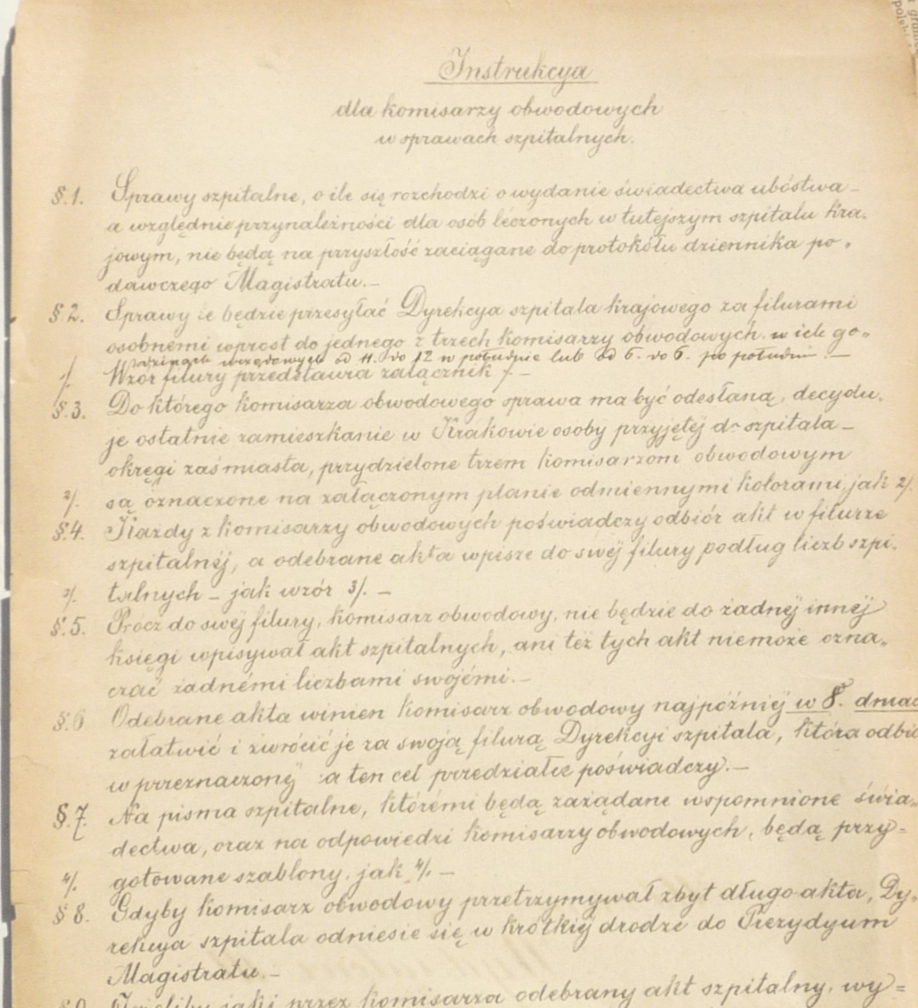 Instrukcya
dla komisarzy obwodowych
w sprawach szpitalnych.
§.1. Sprawy szpitalne, o ile się rozchodzi o wydanie świadectwa ubóstwa –
a względnie przynależności dla osób leczonych w tutejszym szpitalu kra-
jowym, nie będą na przyszłość zaciągane do protokołu dziennika po-
dawczego Magistratu. –
§ 2. Sprawy te będzie przesyłać Dyrekcya szpitala krajowego za filurami
osobnemi wprost do jednego z trzech komisarzy obwodowych. w ich go-
dzinach urzędowych od 11. do 12 w południe lub od 5. do 6. po południu. –
1/. Wzór filury przedstawia załącznik 1. –
§.3. Do którego komisarza obwodowego sprawa ma być odesłaną, decydu-
je ostatnie zamieszkanie w Krakowie osoby przyjętéj do szpitala –
okręgi zaś miasta, przydzielone trzem komisarzom obwodowym
2/. są oznaczone na załączonym planie odmiennymi kolorami, jak 2/.
§.4. Każdy z komisarzy obwodowych poświadczy odbiór akt w filurze
szpitalnéj, a odebrane akta wpisze do swéj filury podług liczb szpi-
3/. talnych – jak wzór 3/. –
§.5. Prócz do swéj filury, komisarz obwodowy, nie będzie do żadnéj innéj
księgi wpisywał akt szpitalnych, ani też tych akt niemoże ozna-
czać żadnémi liczbami swojémi. –
§.6 Odebrane akta winien komisarz obwodowy najpóźniéj w 8. dniac
załatwić i zwrócić je za swoją filurą Dyrekcyi szpitala, która odbió
w przeznaczonéj na ten cel przedziałce poświadczy. –
§.7. Na pisma szpitalne, którémi będą zażądane wspomnione świa-
dectwa, oraz na odpowiedzi komisarzy obwodowych, będą przy-
4/. gotowane szablony, jak 4/. –
§ 8. Gdyby komisarz obwodowy przetrzymywał zbyt długo akta, Dy-
rekcya szpitala odniesie się w krótkiéj drodze do Prezydyum
Magistratu. –
§ 9. Jeżeliby jaki przez komisarza odebrany akt szpitalny, wy-